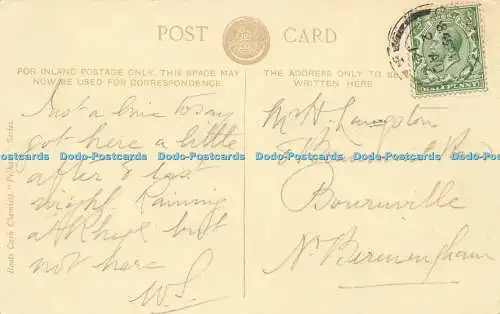 POST CARD
FOR INLAND POSTAGE ONLY, THIS SPACE MAY
NOW BE USED FOR CORRESPONDENCE.
THE ADDRESS ONLY TO BE
WRITTEN HERE
Just a line to say
got here a little
after 8 last
night. Raining
at Rhyl but
not here
W.S.
Langston
Bournville
Nr Birmingham
Boots Cash Chemists "Pelham" Series.
Dodo-Postcards Dodo-Postcards Dodo-Postcards Dodo-Postcards Dodo-Postcards Dodo-Postcards Dodo-Postcards